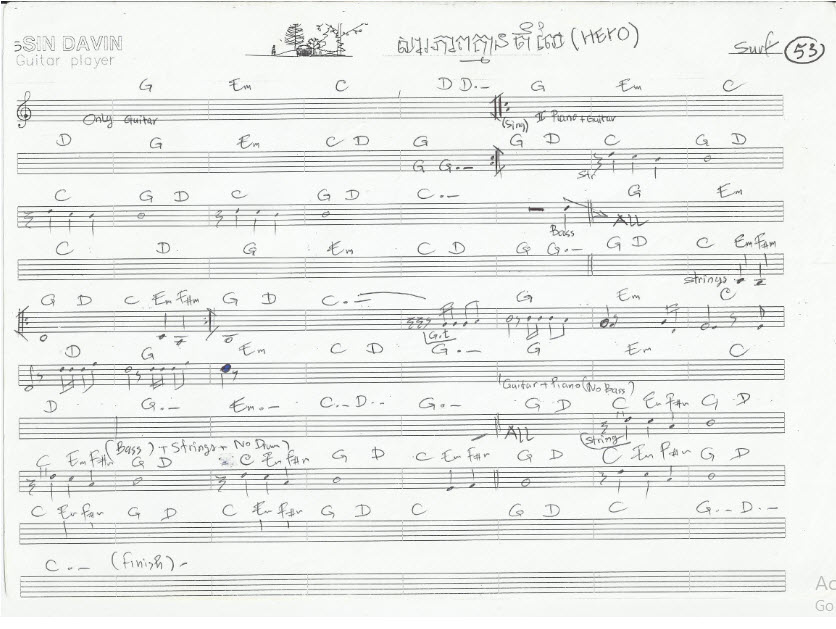 SIN DAVIN
Guitar player
(HERO)
Surf 53
G Em C D D.– G Em C
Only Guitar (Sing) II Piano + Guitar
D G Em C D G G D C G D
G G.–
Str
C G D C G D C.– G Em
Bass ALL
C D G Em C D G G.– G D C Em F#m
Strings
G D C Em F#m G D C.– G Em C
G.t
D G Em C D G.– G Em C
Guitar + Piano (No Bass)
D G.– Em.– C.–D.– G.– G D C Em F#m G D
ALL String
(Bass) + Strings + No Drum)
C Em F#m G D C Em F#m G D C Em F#m G D C Em F#m G D
C Em F#m G D C Em F#m G D C G D C G..D.–
C.– (Finish) –